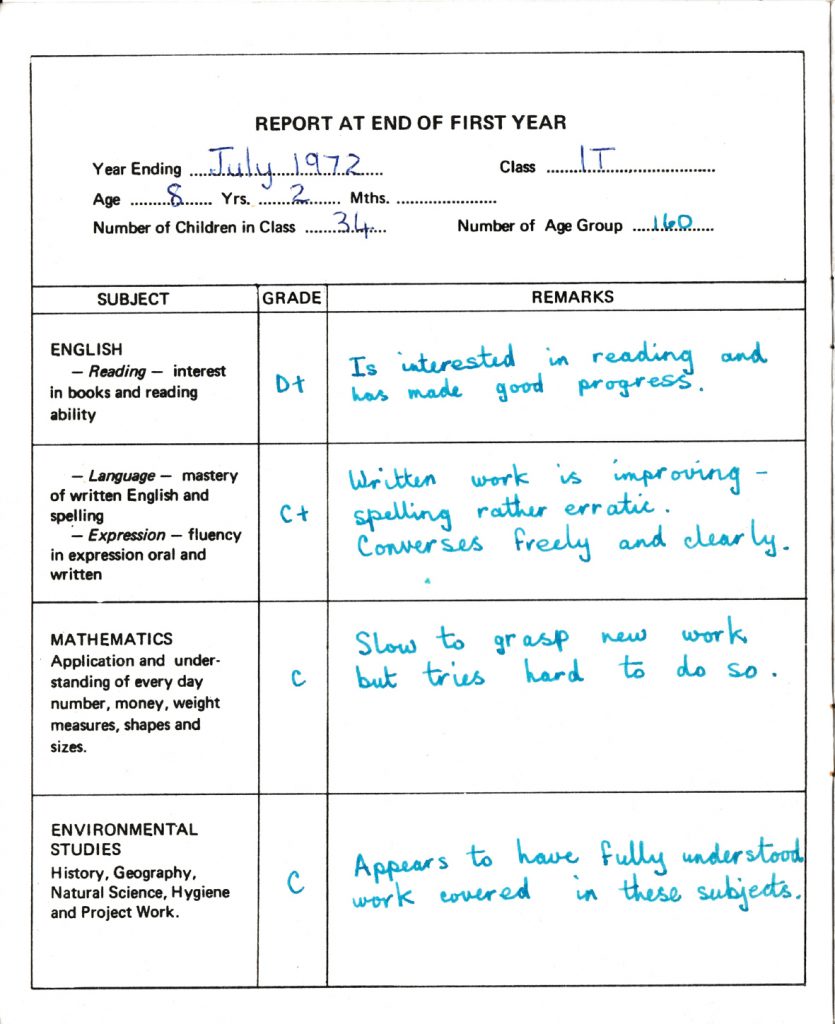 REPORT AT END OF FIRST YEAR
Year Ending July 1972 Class 1T
Age 8 Yrs. 2 Mths.
Number of Children in Class 34 Number of Age Group 160
SUBJECT GRADE REMARKS
ENGLISH
— Reading — interest
in books and reading
ability
D+
Is interested in reading and
has made good progress.
— Language — mastery
of written English and
spelling
— Expression — fluency
in expression oral and
written
C+
Written work is improving –
spelling rather erratic.
Converses freely and clearly.
MATHEMATICS
Application and under-
standing of every day
number, money, weight
measures, shapes and
sizes.
C
Slow to grasp new work
but tries hard to do so.
ENVIRONMENTAL
STUDIES
History, Geography,
Natural Science, Hygiene
and Project Work.
C
Appears to have fully understood
work covered in these subjects.